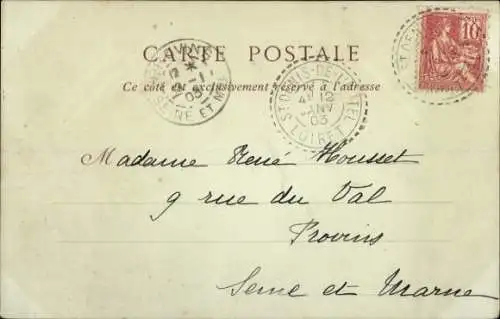 CARTE POSTALE
Ce côté est exclusivement réservé à l'adresse
PROVINS
SEINE ET M
ST DENIS-DE-L'HOTEL
12
JANV
03
LOIRET
10
Madame René Housset
9 rue du Val
Provins
Seine et Marne